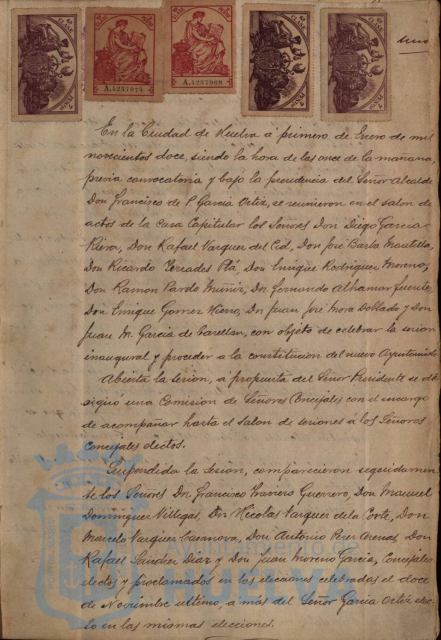 uno
A.4257014
A.4257008
En la Ciudad de Huelva á primero de Enero de mil
novecientos doce, siendo la hora de las once de la mañana,
previa convocatoria y bajo la presidencia del Señor Alcalde
Don Francisco de P. Garcia Ortiz, se reunieron en el salon de
actos de la Casa Capitular los Señores Don Diego Garcia
Riera, Don Rafael Vazquez del Cid, Don José Barba
Don Ricardo Terrades Plá, Don Enrique Rodriguez Moreno,
Don Ramon Pardo Muñiz, Dn. Fernando Alhamar Fuente,
Don Enrique Gomez Hierro, Dn Juan José Mora Doblado y Don
Juan M. Garcia de con objeto de celebrar la sesion
inaugural y proceder a la constitucion del nuevo Ayuntamto
Abierta la sesion, á propuesta del Señor Presidente se
una Comision de Señores Concejales con el encargo
de acompañar hasta el Salon de sesiones á los Señores
Concejales electos.
Suspendida la sesion, comparecieron seguidamen
te los Señores Dn. Francisco Guerrero, Don Manuel
Dominguez Villegas, Dn Nicolas Vazquez de la Corte, Don
Marcelo Vazquez Casanova, Don Antonio Perez Arenas, Don
Rafael Sanchez Diaz y Don Juan Moreno Garcia, Concejales
electos y proclamados en las elecciones celebradas el doce
de Noviembre ultimo, a más del Señor Garcia Ortiz elec
to en las mismas elecciones.